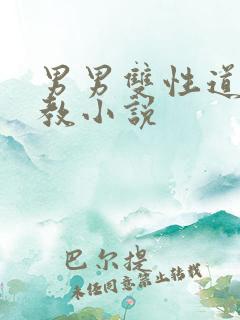 男男雙性道
教小說
巴尔提
未经同意禁止转载